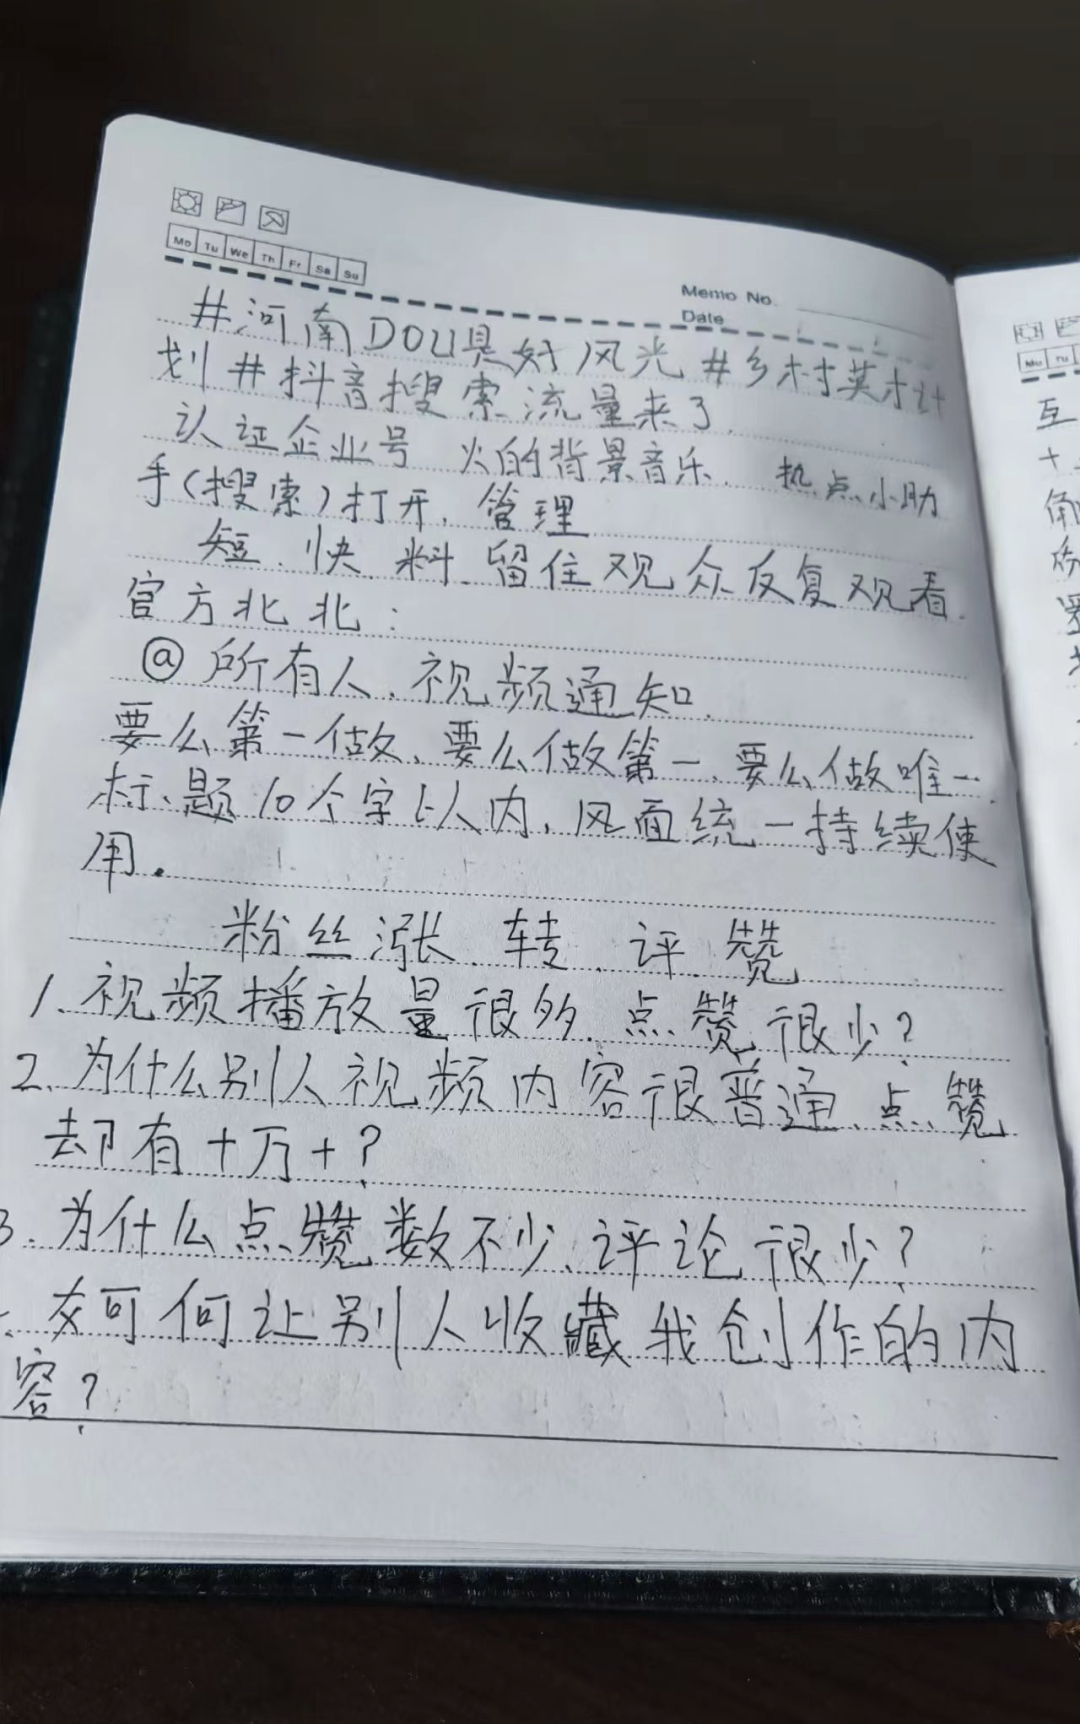 Mo Tu We Th Fr Sa Su
Memo No.
Date
#河南DOU是好风光#乡村英才计
划#抖音搜索流量来了
认证企业号 火的背景音乐. 热点小助
手(搜索)打开. 管理
短、快、料、留住观众反复观看.
官方北北:
@所有人、视频通知.
要么第一做、要么做第一、要么做唯一.
标题10个字以内、风面统一持续使
用.
粉丝涨、转、评、赞
1、视频播放量很多、点赞很少?
2、为什么别人视频内容很普通、点赞
却有十万+?
3、为什么点赞数不少、评论很少?
何让别人收藏我创作的内
容?
Mo Tu
互
十